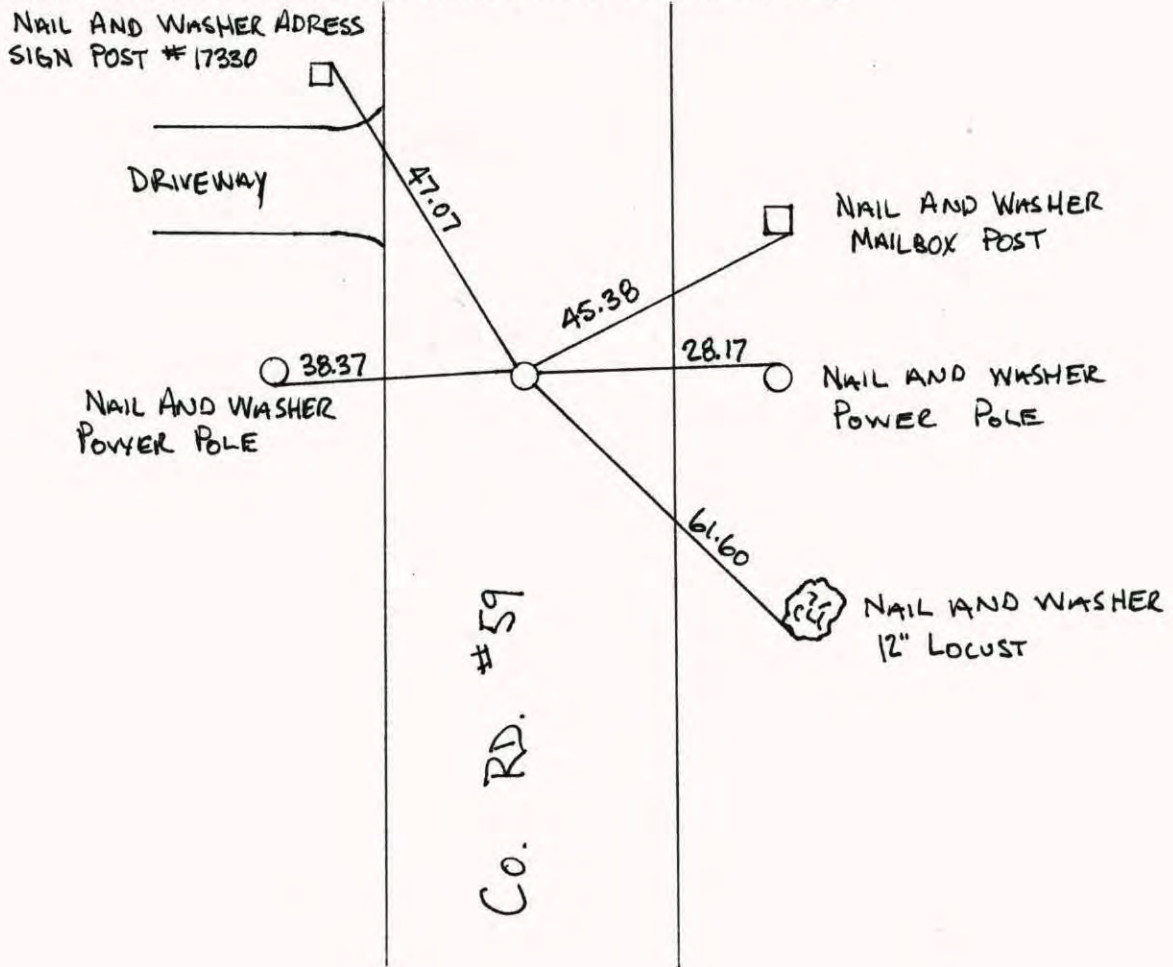 NAIL AND WASHER ADRESS
SIGN POST # 17330
DRIVEWAY
47.07
NAIL AND WASHER
MAILBOX POST
45.38
38.37
28.17
NAIL AND WASHER
POWER POLE
NAIL AND WASHER
POWER POLE
61.60
NAIL AND WASHER
12" LOCUST
Co. RD. # 59